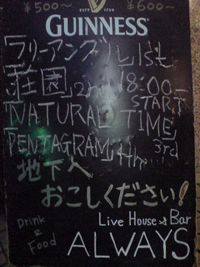 ¥500〜 ¥600〜
ESTD 1759
GUINNESS
フリーアングル 1st
荘園 2nd 18:00-
START
NATURAL TIME
3rd
PENTAGRAM 4th
地下へ
おこしください!
Drink
&
Food
Live House & Bar
ALWAYS